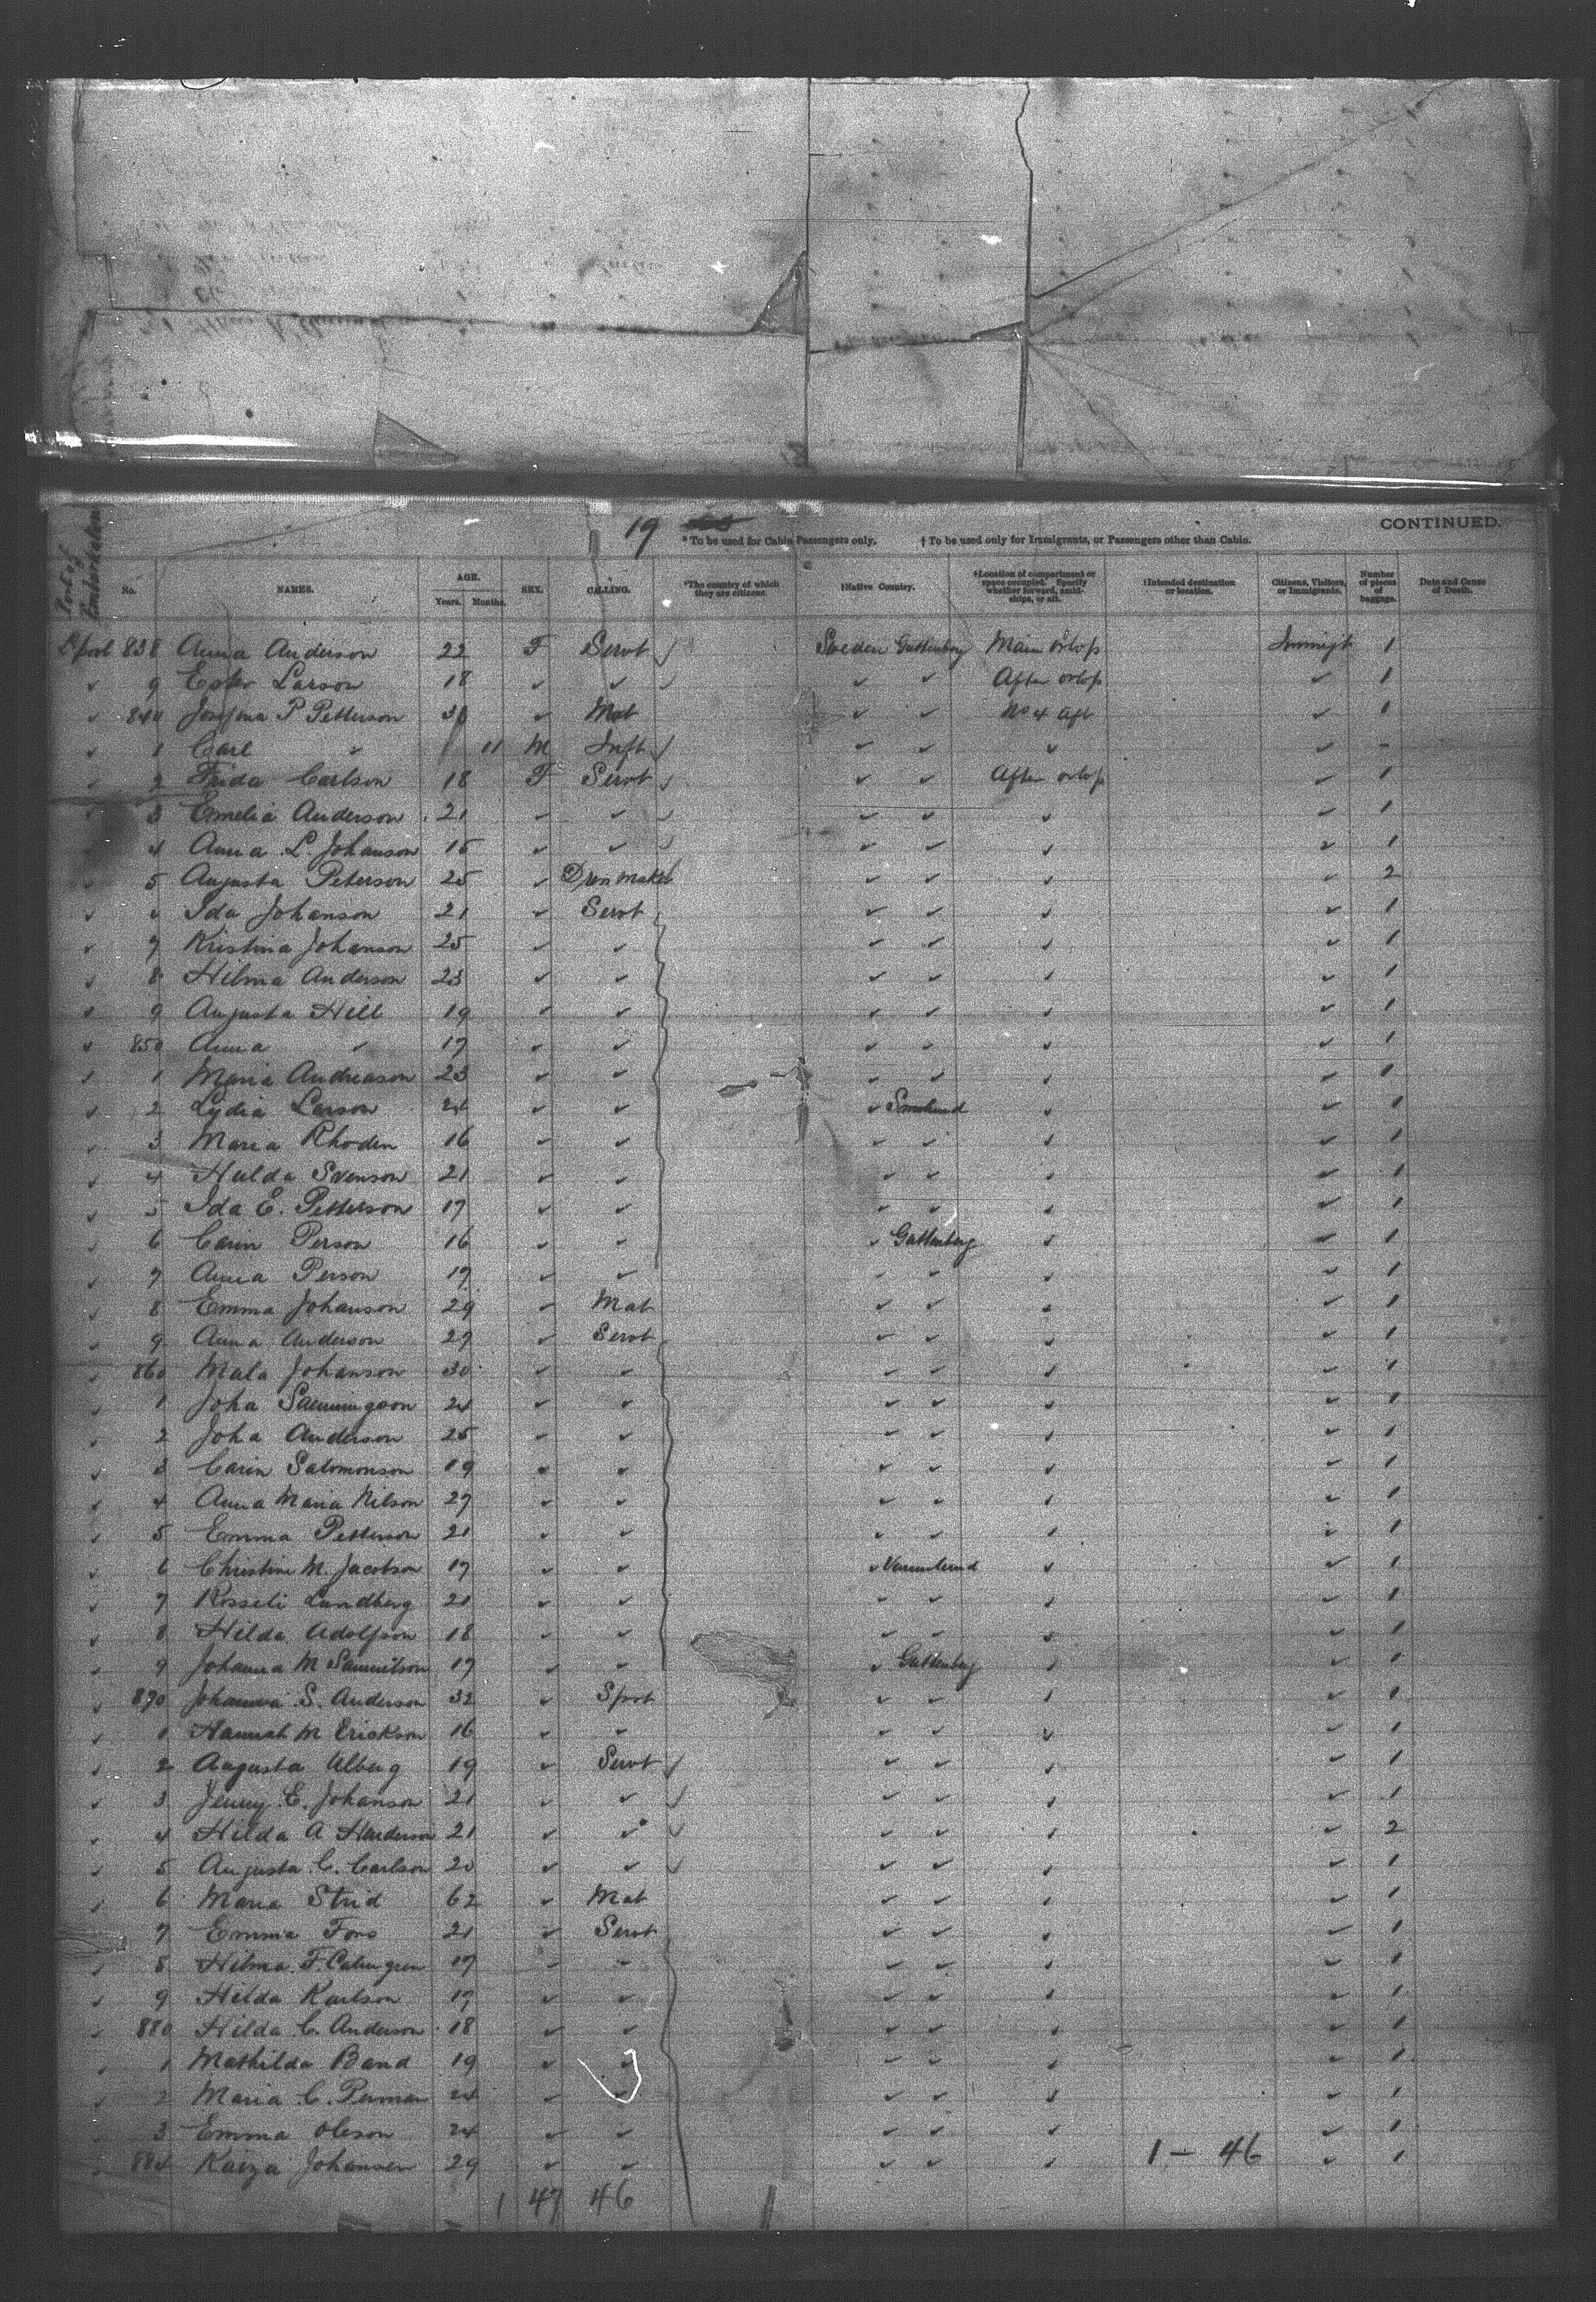 19
CONTINUED.
* To be used for Cabin Passengers only. † To be used only for Immigrants, or Passengers other than Cabin.
Port of Embarkation
No. NAMES. AGE. Years. Months. SEX. CALLING. *The country of which they are citizens. †Native Country. †Location of compartment or space occupied. Specify whether forward, amidships, or aft. †Intended destination or location. Citizens, Visitors, or Immigrants. Number of pieces of baggage. Date and Cause of Death.
L'pool 838 Anna Anderson 22 F Servt Sweden Guttenberg Main orlop Immigt 1
✓ 9 Larson 18 ✓ ✓ ✓ ✓ After orlop ✓ 1
✓ 840 Josefina P Petterson ✓ Mat ✓ ✓ No 4 Aft ✓ 1
✓ 1 Carl ✓ 11 M Inft ✓ ✓ ✓ ✓ -
✓ 2 Frida Carlson 18 F Servt ✓ ✓ After orlop ✓ 1
3 Emelia Anderson 21 ✓ ✓ ✓ ✓ ✓ ✓ 1
4 Anna L. Johanson 15 ✓ ✓ ✓ ✓ ✓ ✓ 1
5 Augusta Peterson 25 ✓ Dressmaker ✓ ✓ ✓ ✓ 2
✓ ✓ Ida Johanson 21 ✓ Servt ✓ ✓ ✓ ✓ 1
✓ 7 Kristina Johanson 25 ✓ ✓ ✓ ✓ ✓ ✓ 1
✓ 8 Hilma Anderson 23 ✓ ✓ ✓ ✓ ✓ ✓ 1
✓ 9 Augusta Hill 19 ✓ ✓ ✓ ✓ ✓ ✓ 1
✓ 850 Anna ✓ 17 ✓ ✓ ✓ ✓ ✓ ✓ 1
✓ 1 Maria Andreason 23 ✓ ✓ ✓ ✓ ✓ ✓ 1
✓ 2 Lydia Larson 24 ✓ ✓ ✓ Smoland ✓ ✓ 1
✓ 3 Maria Rhoden 16 ✓ ✓ ✓ ✓ ✓ ✓ 1
✓ 4 Hulda Svenson 21 ✓ ✓ ✓ ✓ ✓ ✓ 1
✓ 5 Ida E. Petterson 17 ✓ ✓ ✓ ✓ ✓ ✓ 1
✓ 6 Carin Person 16 ✓ ✓ ✓ Guttenberg ✓ ✓ 1
✓ 7 Anna Person 17 ✓ ✓ ✓ ✓ ✓ ✓ 1
✓ 8 Emma Johanson 29 ✓ Mat ✓ ✓ ✓ ✓ 1
✓ 9 Anna Anderson 27 ✓ Servt ✓ ✓ ✓ ✓ 1
✓ 860 Mala Johanson 30 ✓ ✓ ✓ ✓ ✓ ✓ 1
✓ 1 Joha 24 ✓ ✓ ✓ ✓ ✓ ✓ 1
✓ 2 Joha Anderson 25 ✓ ✓ ✓ ✓ ✓ ✓ 1
✓ 3 Carin Salomonson 19 ✓ ✓ ✓ ✓ ✓ ✓ 1
✓ 4 Anna Maria Nilson 27 ✓ ✓ ✓ ✓ ✓ ✓ 1
✓ 5 Emma Petterson 21 ✓ ✓ ✓ ✓ ✓ ✓ 1
✓ 6 Christine M. Jacobson 17 ✓ ✓ ✓ ✓ ✓ 1
✓ 7 Rosseli Lundberg 21 ✓ ✓ ✓ ✓ ✓ ✓ 1
✓ 8 Hilda Adolfson 18 ✓ ✓ ✓ ✓ ✓ ✓ 1
✓ 9 Johanna M Samuelson 17 ✓ ✓ ✓ Guttenberg ✓ ✓ 1
✓ 870 Johanna S. Anderson 32 ✓ Spst ✓ ✓ ✓ ✓ 1
✓ 1 Hannah M Erickson 16 ✓ ✓ ✓ ✓ ✓ ✓ 1
✓ 2 Augusta Ulberg 19 ✓ Servt ✓ ✓ ✓ ✓ 1
✓ 3 Jenny E. Johanson 21 ✓ ✓ ✓ ✓ ✓ ✓ 1
✓ 4 Hilda A 21 ✓ ✓ ✓ ✓ ✓ ✓ 2
✓ 5 Augusta C. Carlson 20 ✓ ✓ ✓ ✓ ✓ ✓ 1
✓ 6 Maria Strid 62 ✓ Mat ✓ ✓ ✓ ✓ 1
7 Emma Fors 21 ✓ Servt ✓ ✓ ✓ ✓ 1
✓ 8 Hilma F. 17 ✓ ✓ ✓ ✓ ✓ ✓ 1
✓ 9 Hilda Karlson 17 ✓ ✓ ✓ ✓ ✓ ✓ 1
✓ 880 Hilda C. Anderson 18 ✓ ✓ ✓ ✓ ✓ ✓ 1
✓ 1 Mathilda Band 19 ✓ ✓ ✓ ✓ ✓ ✓ 1
✓ 2 Maria C. Perman 24 ✓ ✓ ✓ ✓ ✓ ✓ 1
✓ 3 Emma Oleson 24 ✓ ✓ ✓ ✓ ✓ ✓ 1
✓ 884 Kaiza Johansen 29 ✓ ✓ ✓ ✓ ✓ 1 - 46 ✓ 1
1 47 46